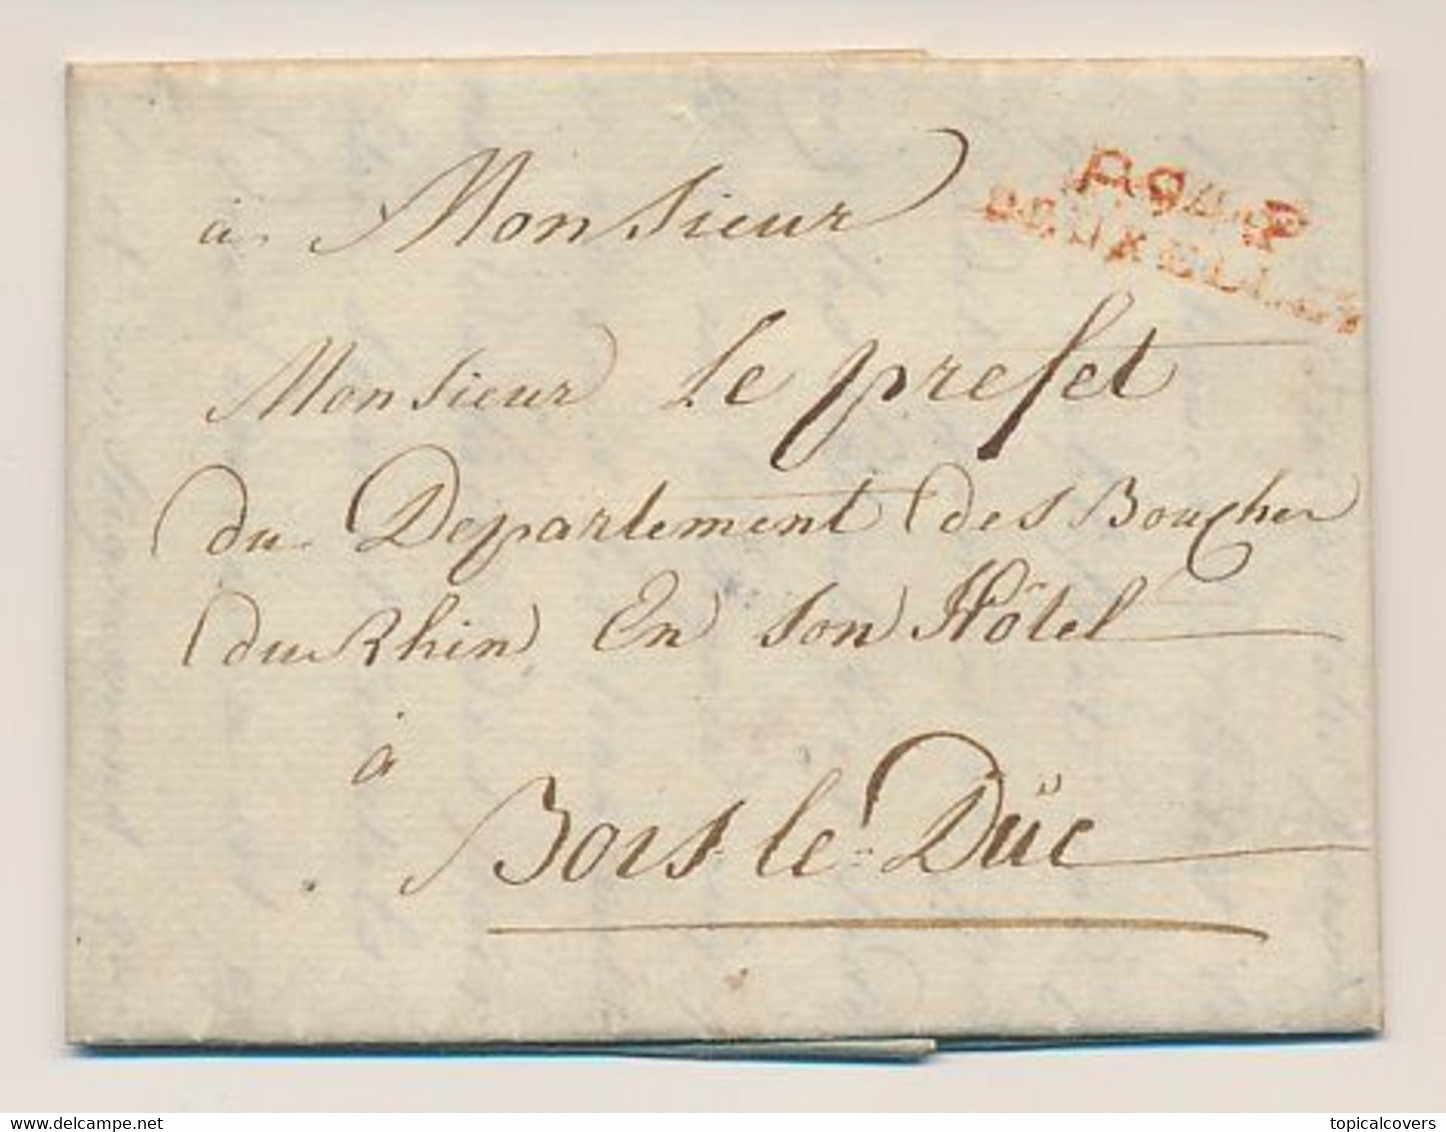 à Monsieur
P.94.P
BRUXELLES
Monsieur Le prefet
du Departement des Bouches
du Rhin En son Hôtel
à
Bois-le-Duc
www.delcampe.net
topicalcovers